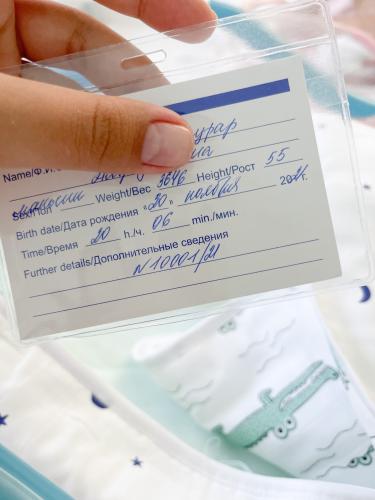 Name/Ф.И.
Weight/Вес 3646 Height/Рост 55
Birth date/Дата рождения «20» ноября 2021г.
Time/Время 20 h./ч. 06 min./мин.
Further details/Дополнительные сведения
N10001/21